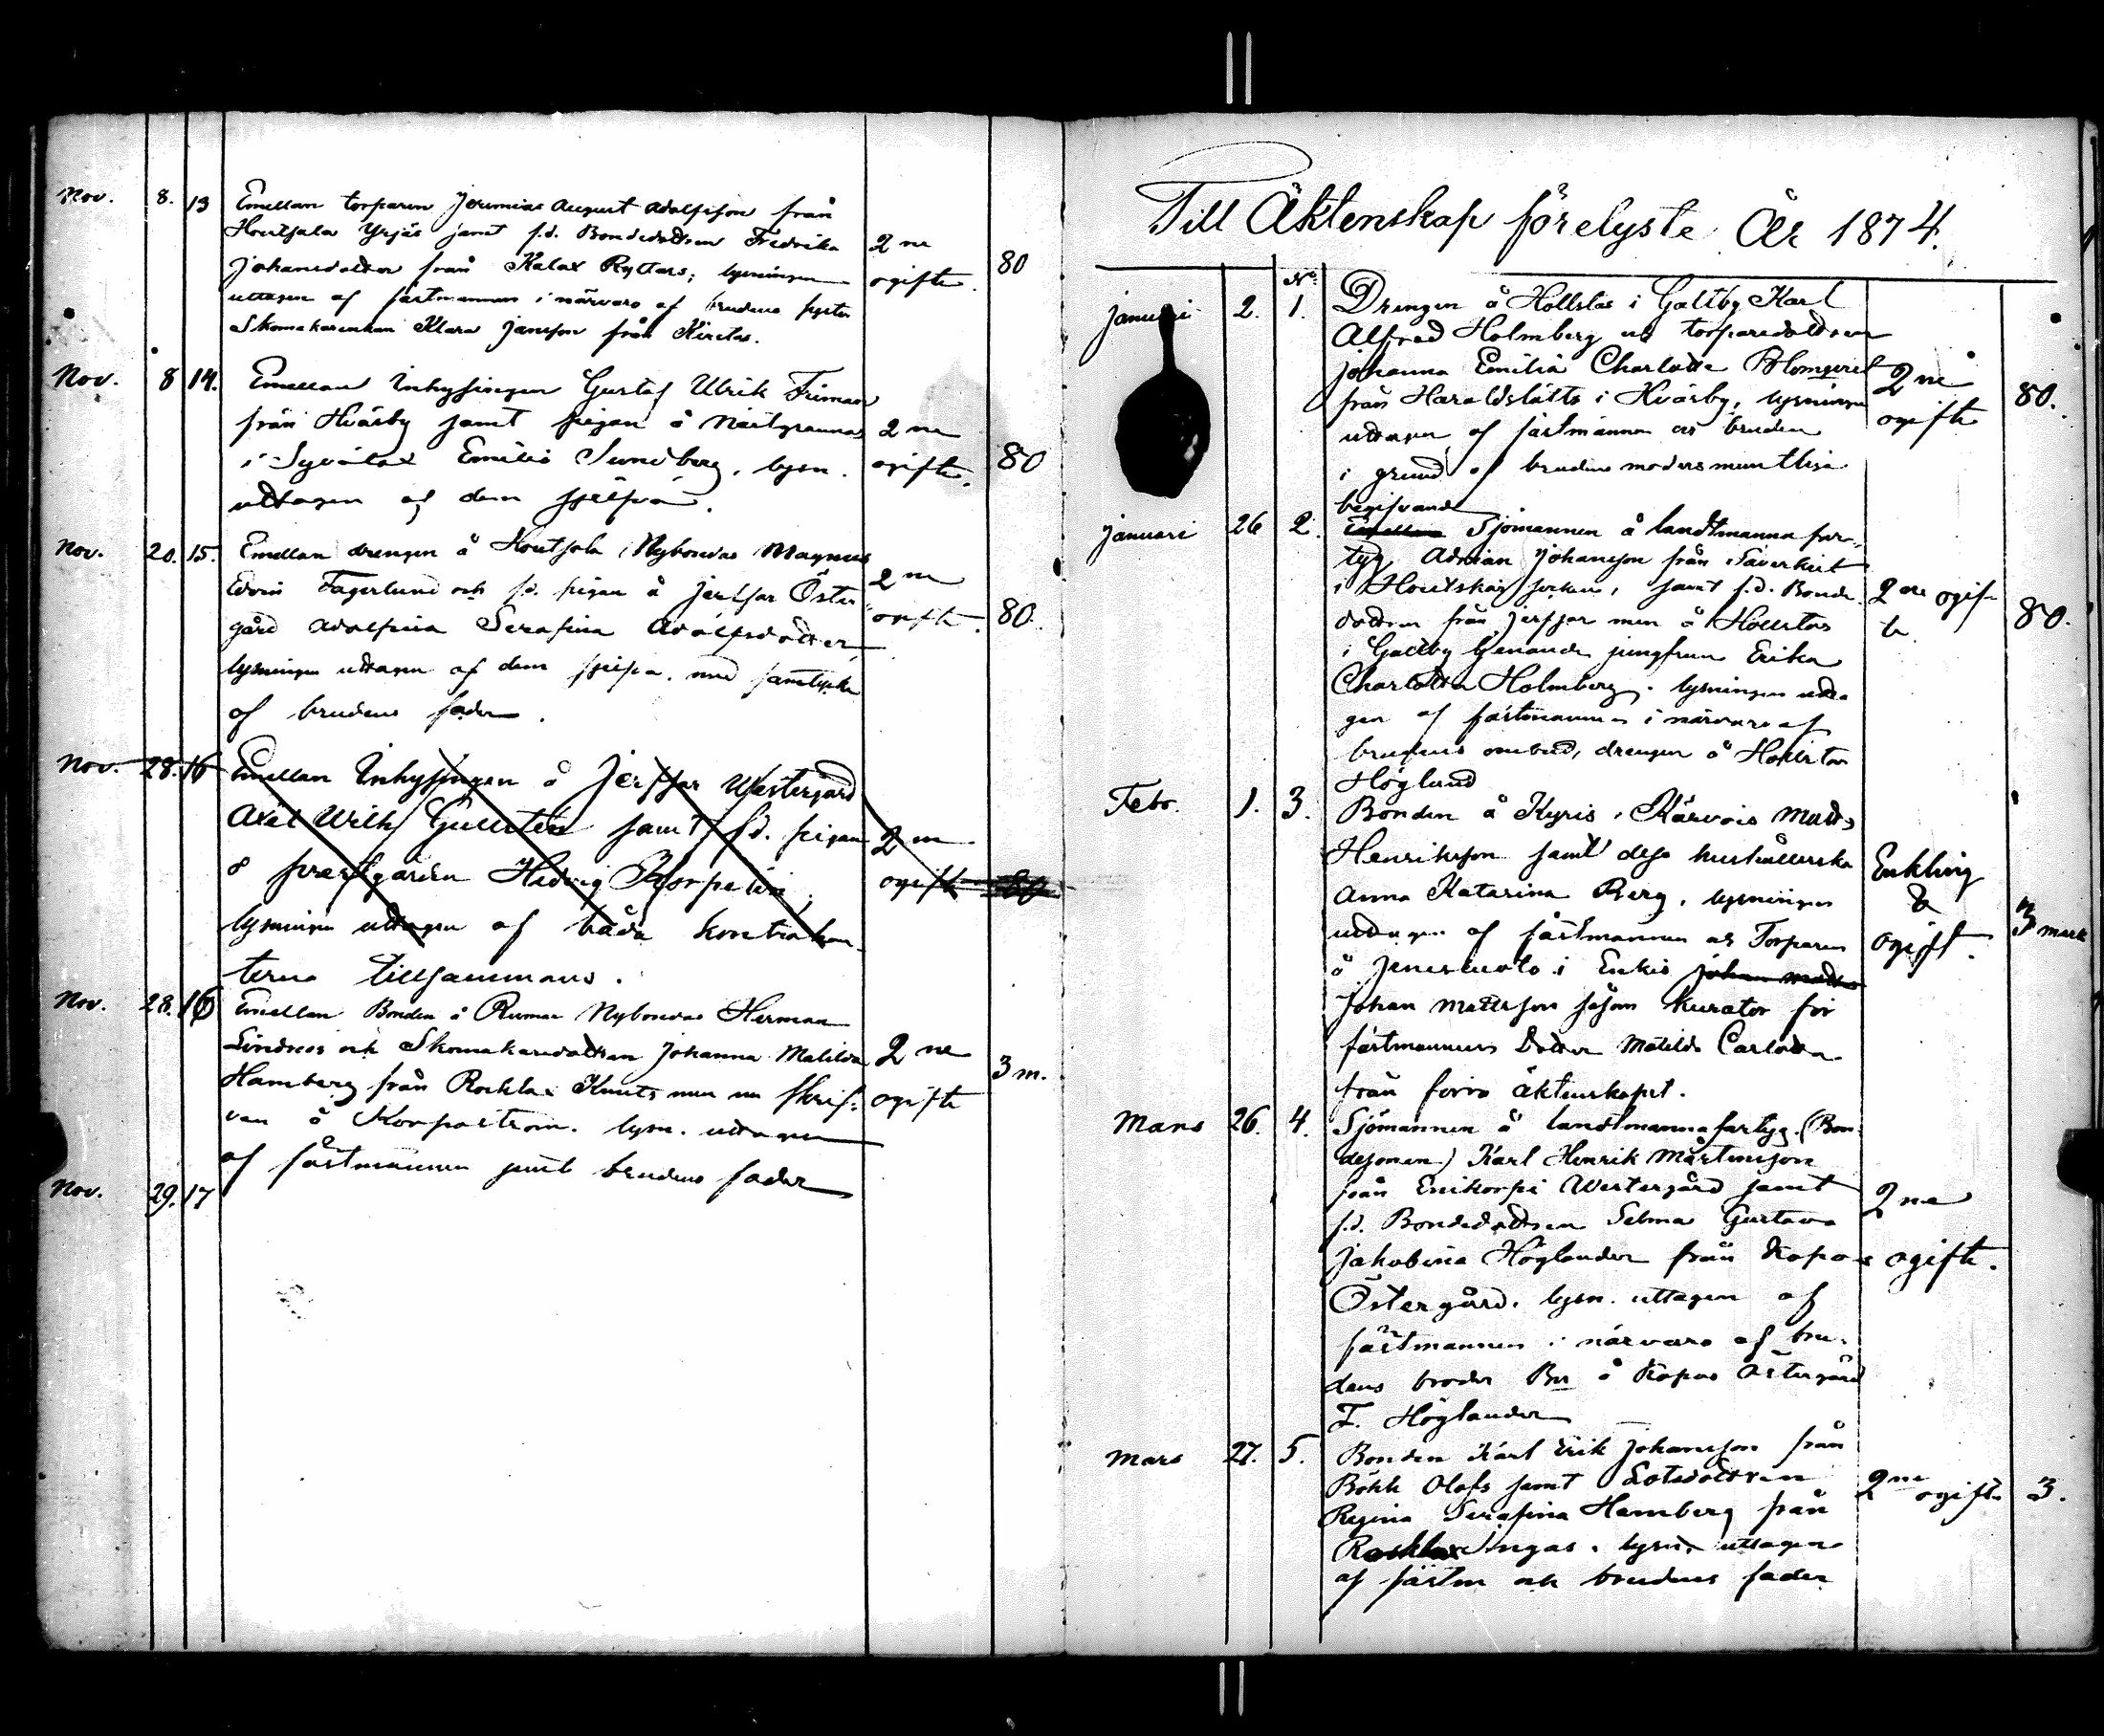 Nov. 8. 13 Emellan torparen Jeremias August Adolfsson från
Houtsala Yrjäs samt f.d. Bondedottren Fredrika
Johansdotter från Kalax Ryttars; lysningen
uttagen af fästmannen i närvaro af brudens syster
Skomakarenkan Klara Jansson från
2 ne
ogifte.
80
Nov. 8 14. Emellan Inhysingen Gustaf Ulrik Friman
från Hväsby samt pigan å
i Emilia Sundberg, lysn.
uttagen af dem sjelfva.
2 ne
ogifte.
80
Nov. 20. 15. Emellan drengen å Houtsala Nybondas Magnus
Edvin Fagerlund och f.d. pigan å Jerfsar Öster
gård Adolfina Serafina Adolfsdotter,
lysningen uttagen af dem sjelfva, med samtycke
af brudens fader.
2 ne
ogifte.
80.
Nov. 28. 16 Emellan Inhysingen å Jerfsar Westergård
Axel Wilh. samt f.d. pigan
å prestgården Hedvig
lysningen uttagen af båda kontrahen
terna tillsammans.
2 ne
ogifte
80
Nov. 28. 16 Emellan Bonden å Rumar Nybondas Herman
Lindroos och Skomakaredottren Johanna Matilda
Hamberg från Rocklax Knuts men nu skrif-
ven å Korpoström. lysn. uttagen
af fästmannen samt brudens fader
2 ne
ogifte
3 m.
Nov. 29. 17
Till Äktenskap förelyste År 1874.
No
Januari 2. 1. Drengen å Hollstas i Galtby Karl
Alfred Holmberg och torparedottren
Johanna Emilia Charlotta Blomqvist
från Haraldslätts i Hväsby, lysningen
uttagen af fästmannen och bruden
i grund af brudens moders muntliga
begifvande
2 ne
ogifte
80.
Januari 26 2. Emellan Sjömannen å landtmanna far-
tyg Adrian Johansson från Säverkeit
i Houtskär socken, samt f.d. Bonde
dottren från Jerfsar men å Hollstas
i Galtby tjenande jungfrun Erika
Charlotta Holmberg. lysningen utta
gen af fästmannen i närvaro af
brudens ombud, drengen å Hollstas
Höglund
2 ne ogif-
te
80.
Febr. 1. 3. Bonden å Kyris i Kärvois Matts
Henriksson samt dess hushållerska
Anna Katarina Berg, lysningen
uttagen af fästmannen och Torparen
å i Enkis Johan Matts
Johan Mattsson såsom kurator för
fästmannens dotter Matilda Carlotta
från förra äktenskapet.
Enkling
&
ogift.
3 mark
Mars 26. 4. Sjömannen å landtmannafartyg (Bon-
desonen) Karl Henrik Mårtensson
från Enikorpi Westergård samt
f.d. Bondedottren Selma Gustava
Jakobina Höglander från Kopas
Östergård. lysn. uttagen af
fästmannen i närvaro af bru-
dens broder Bn å Kopas Östergård
F. Höglander
2 ne
ogifte.
Mars 27. 5. Bonden Karl Erik Johansson från
Bökk Olofs samt Lotsdottren
Regina Serafina Hamberg från
Rocklax Ingas. lysn. uttagen
af fästm och brudens fader
2 ne ogifte
3.